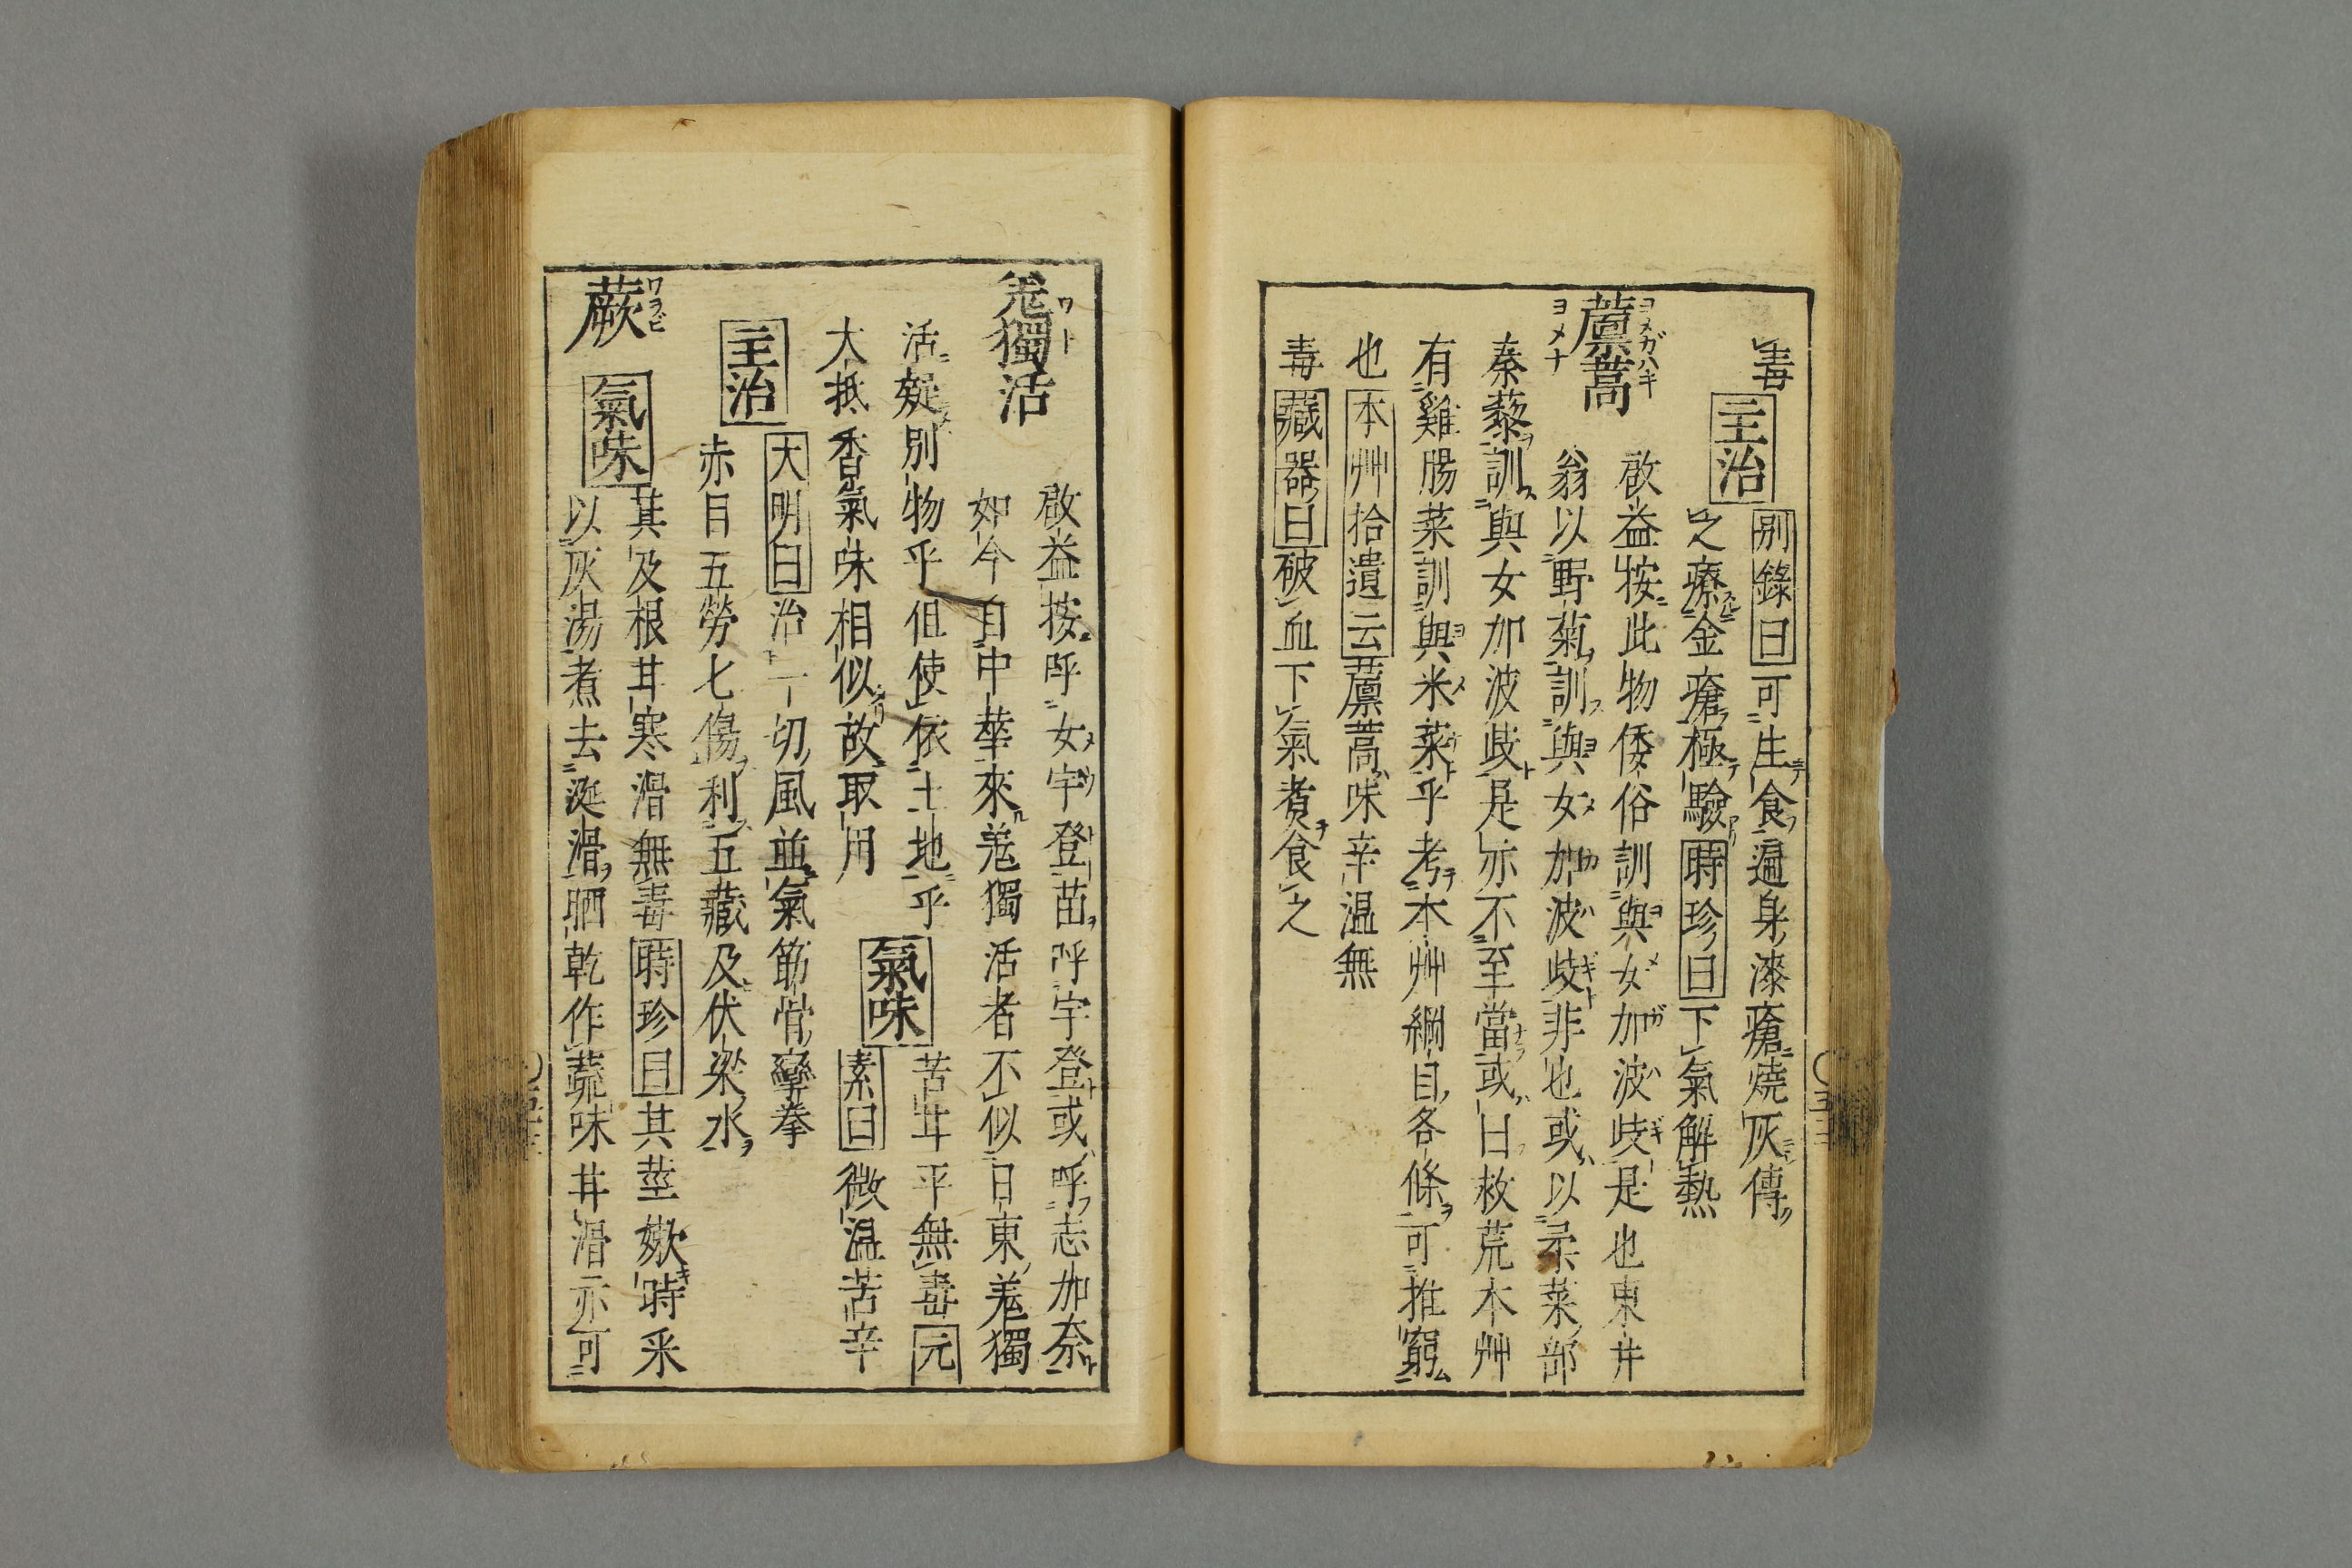 毒
主治
別錄曰可生食遍身漆瘡燒灰傅
之療金瘡極驗時珍曰下氣解熱
薦蒿
ヨメガハギ
ヨメナ
啟益按此物倭俗訓與女加波歧是也東井
翁以野菊訓與女加波歧非也或以柔菜部
秦藜訓與女加波歧是亦不至當或曰救荒本艸
有雞腸菜訓與米菜乎考本艸綱目各條可推窮
也本艸拾遺云薦蒿味辛温無
毒藏器曰破血下氣煮食之
羗獨活
ウト
啟益按呼女宇登苗呼宇登或呼志加奈
如今自中華來羗獨活者不似日東羗獨
活疑別物乎但使依土地乎
大抵香氣味相似故取用
氣味
苦甘平無毒元
素曰微温苦辛
主治
大明曰治一切風並氣筋骨攣拳
赤目五勞七傷利五藏及伏梁水
蕨
ワラビ
氣味
其及根甘寒滑無毒時珍曰其莖嫩時采
以灰湯煮去涎滑晒乾作蔬味甘滑亦可